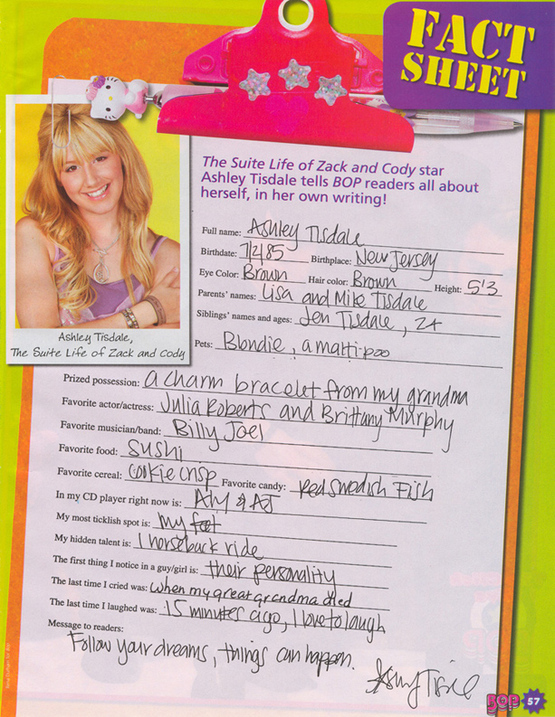 FACT
SHEET
The Suite Life of Zack and Cody star
Ashley Tisdale tells BOP readers all about
herself, in her own writing!
Ashley Tisdale,
The Suite Life of Zack and Cody
Full name: Ashley Tisdale
Birthdate: 7/2/85 Birthplace: New Jersey
Eye Color: Brown Hair color: Brown Height: 5'3
Parents' names: Lisa and Mike Tisdale
Siblings' names and ages: Jen Tisdale, 24
Pets: Blondie, a malti-poo
Prized possession: a charm bracelet from my grandma
Favorite actor/actress: Julia Roberts and Brittany Murphy
Favorite musician/band: Billy Joel
Favorite food: Sushi
Favorite cereal: Cookie Crisp Favorite candy: Red Swedish Fish
In my CD player right now is: Aly & AJ
My most ticklish spot is: my feet
My hidden talent is: I horseback ride
The first thing I notice in a guy/girl is: their personality
The last time I cried was: when my great grandma died
The last time I laughed was: 15 minutes ago, I love to laugh
Message to readers:
Follow your dreams, things can happen.
BOP 57